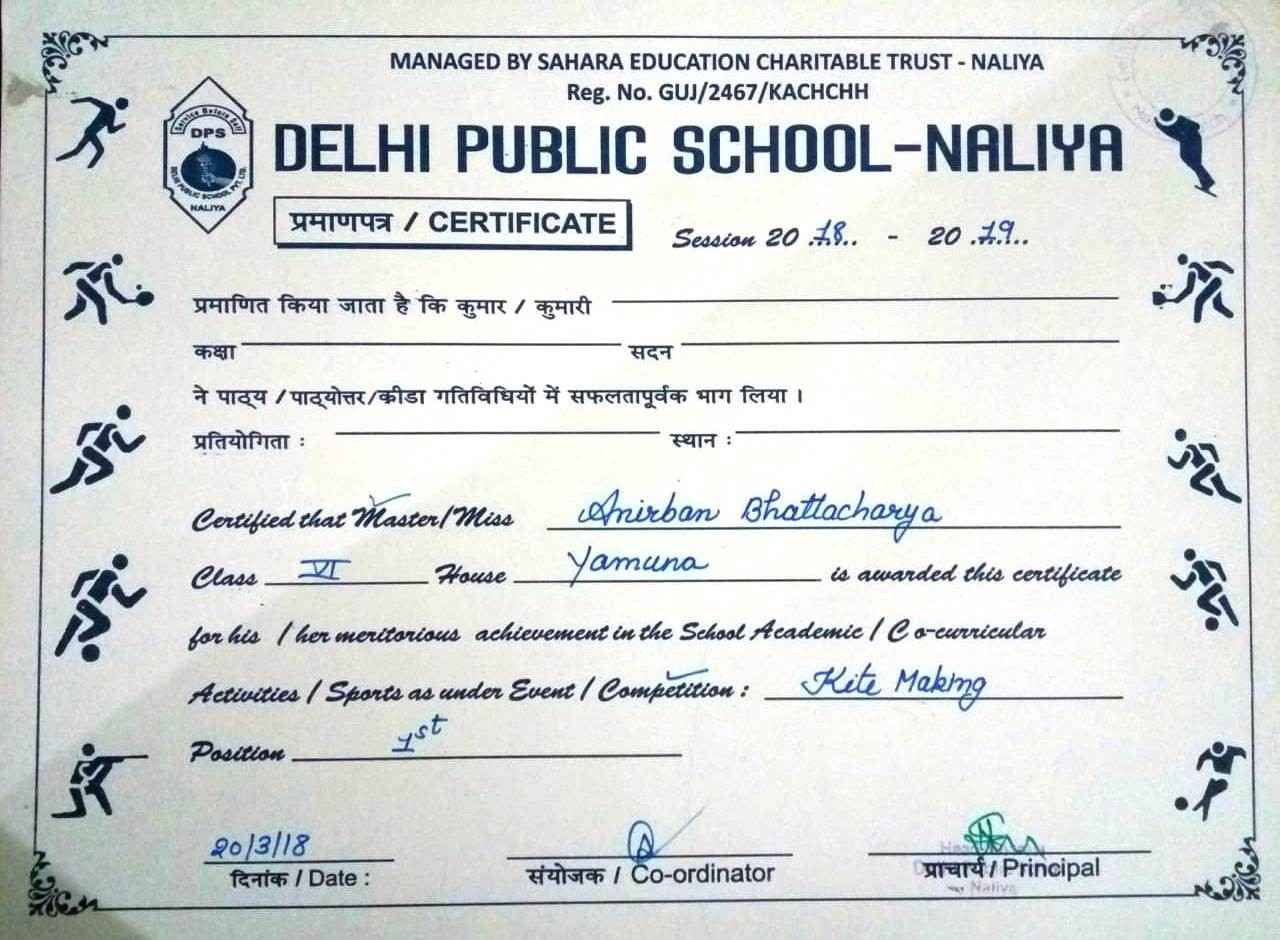 MANAGED BY SAHARA EDUCATION CHARITABLE TRUST - NALIYA
Reg. No. GUJ/2467/KACHCHH
Service Before Self
DPS
DELHI PUBLIC SCHOOL PVT. LTD.
NALIYA
DELHI PUBLIC SCHOOL-NALIYA
प्रमाणपत्र / CERTIFICATE
Session 20 .18.. - 20 .19..
प्रमाणित किया जाता है कि कुमार / कुमारी
कक्षा सदन
ने पाठ्य / पाठ्योत्तर/कीडा गतिविधियों में सफलतापूर्वक भाग लिया ।
प्रतियोगिता : स्थान :
Certified that Master/Miss Anirban Bhattacharya
Class VI House Yamuna is awarded this certificate
for his / her meritorious achievement in the School Academic / Co-curricular
Activities / Sports as under Event / Competition : Kite Making
Position 1st
20/3/18
दिनांक / Date : संयोजक / Co-ordinator प्राचार्य / Principal
Naliya